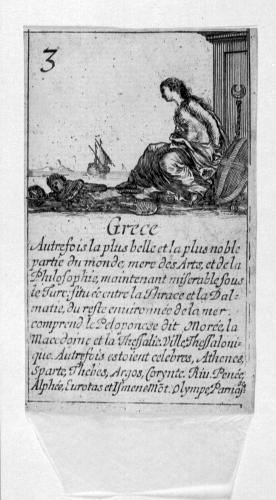 3
Grece
Autrefois la plus belle et la plus noble
partie du monde, mere des Arts, et de la
Philosophie, maintenant miserable sous
le Turc. située entre la Thrace et la Dal-
matie, du reste environnée de la mer.
comprend le Peloponese dit Morée, la
Macedoine et la Thessalie. Ville Thessaloni-
que. Autrefois estoient celebres, Athenes,
Sparte, Thebes, Argos, Corynte. Riu. Penée,
Alphée, Eurotas et Ismene Mõt. Olympe, Parnasse